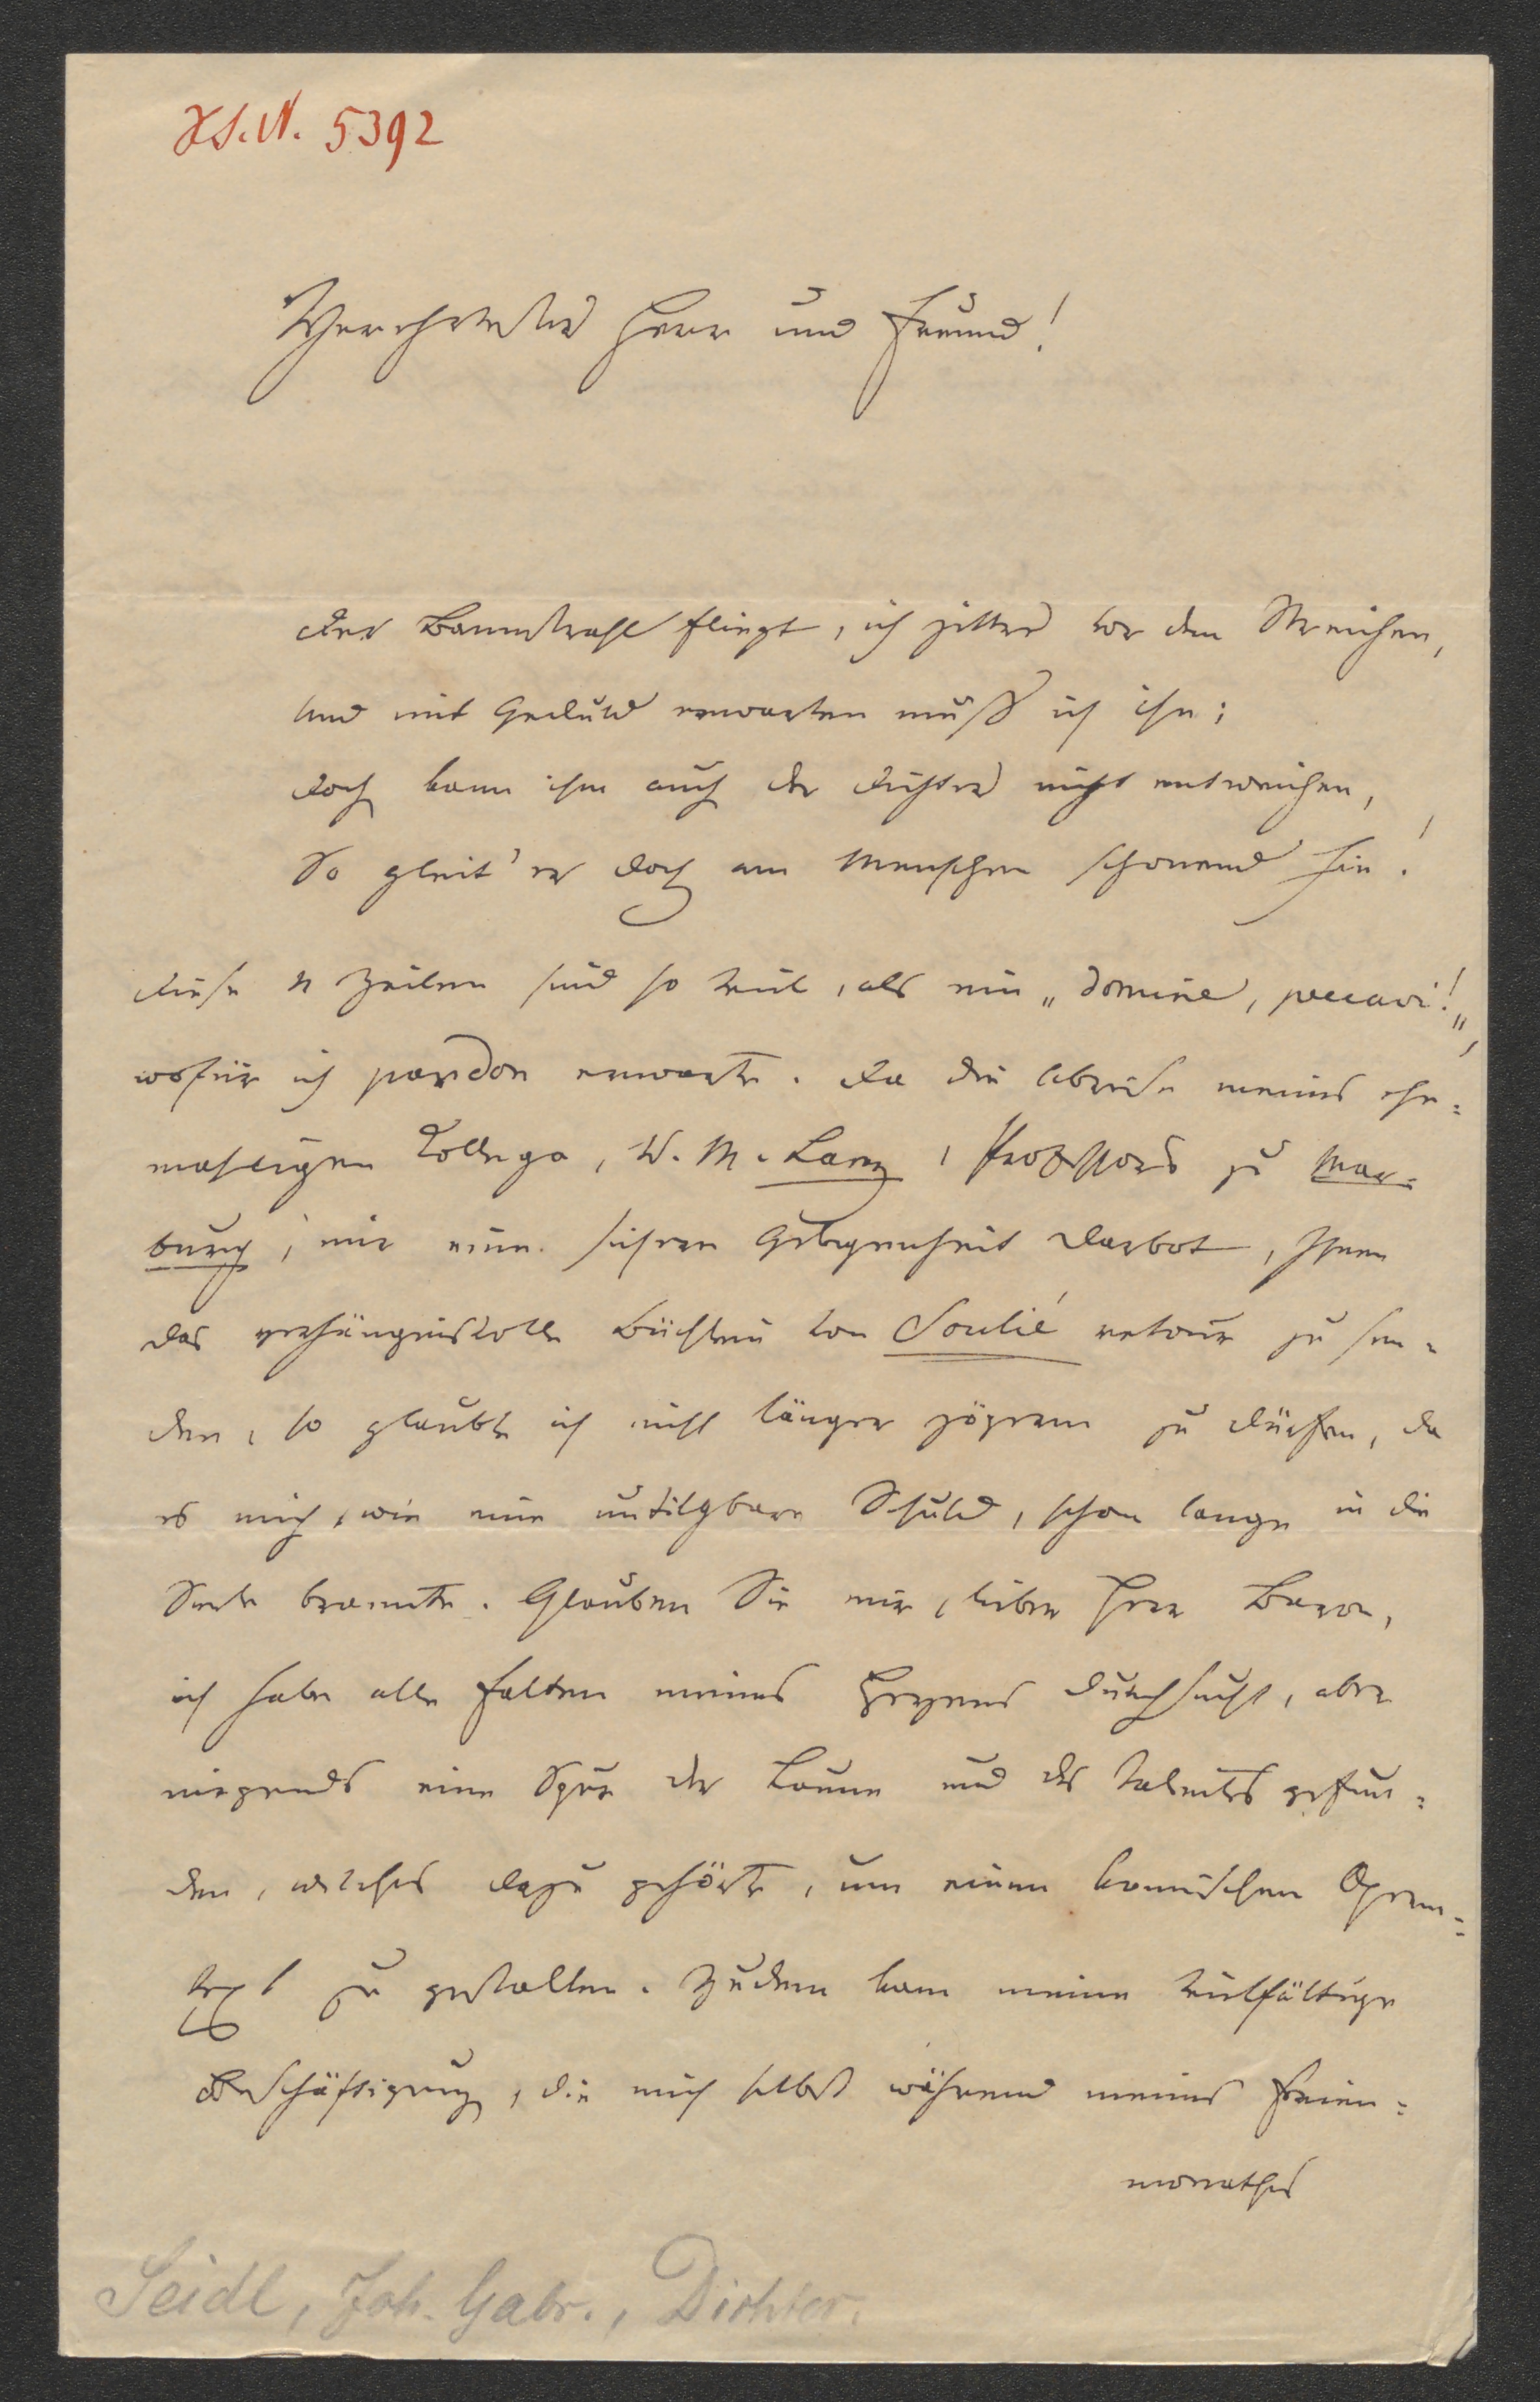 H.S.N. 5392
Verehrtester Herr und Freund!
Der Bannstrahl fliegt, ich zittre vor den Streichen,
Und mit Geduld erwarten muß ich ihn;
Doch kann ihm auch der Dichter nicht entweichen,
So gleit' er doch am Menschen schonend hin!
Diese 4 Zeilen sind so viel, als ein „Domine, peccavi!“,
wofür ich pardon erwarte. Da die Abreise meines ehe-
mahligen Collega, W. M. Lanz, Professors zu Mar-
burg, mir eine sichere Gelegenheit darbot, Ihnen
das verhängnißvolle Büchlein von Soulié retour zu sen-
den, so glaubte ich nicht länger zögern zu dürfen, da
es mich, wie eine untilgbare Schuld, schon lange in die
Seele brannte. Glauben Sie mir, lieber Herr Baron,
ich habe alle Falten meines Herzens durchsucht, aber
nirgends eine Spur der Laune und des Talentes gefun-
den, welches dazu gehörte, um einen komischen Opern-
text zu gestalten. Zudem kam meine vielfältige
Beschäftigung, die mich selbst während meines Ferien-
monathes
Seidl, Joh. Gabr., Dichter.